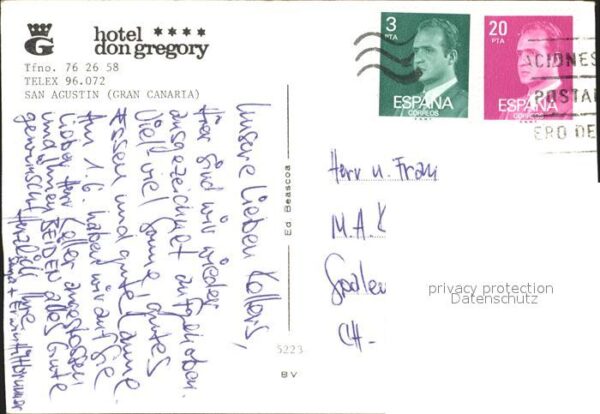 hotel
don gregory
Tfno. 76 26 58
TELEX 96.072
SAN AGUSTIN (GRAN CANARIA)
Unsere lieben Kollers,
Hier sind wir wieder
ausgezeichnet aufgehoben.
Viel viel Sonne, gutes
Essen und gute Laune.
Am 1.6. haben wir auf Sie
lieber Herr Koller angestossen
und Ihnen BEIDEN alles Gute
gewünscht. Herzlich Ihre
Ed. Beascoa
5223
BV
3
PTA
ESPAÑA
CORREOS
20
PTA
ESPAÑA
CORREOS
ACIONES
POSTAL
ERO DE
Herr u. Frau
M.A.K
CH-
privacy protection
Datenschutz